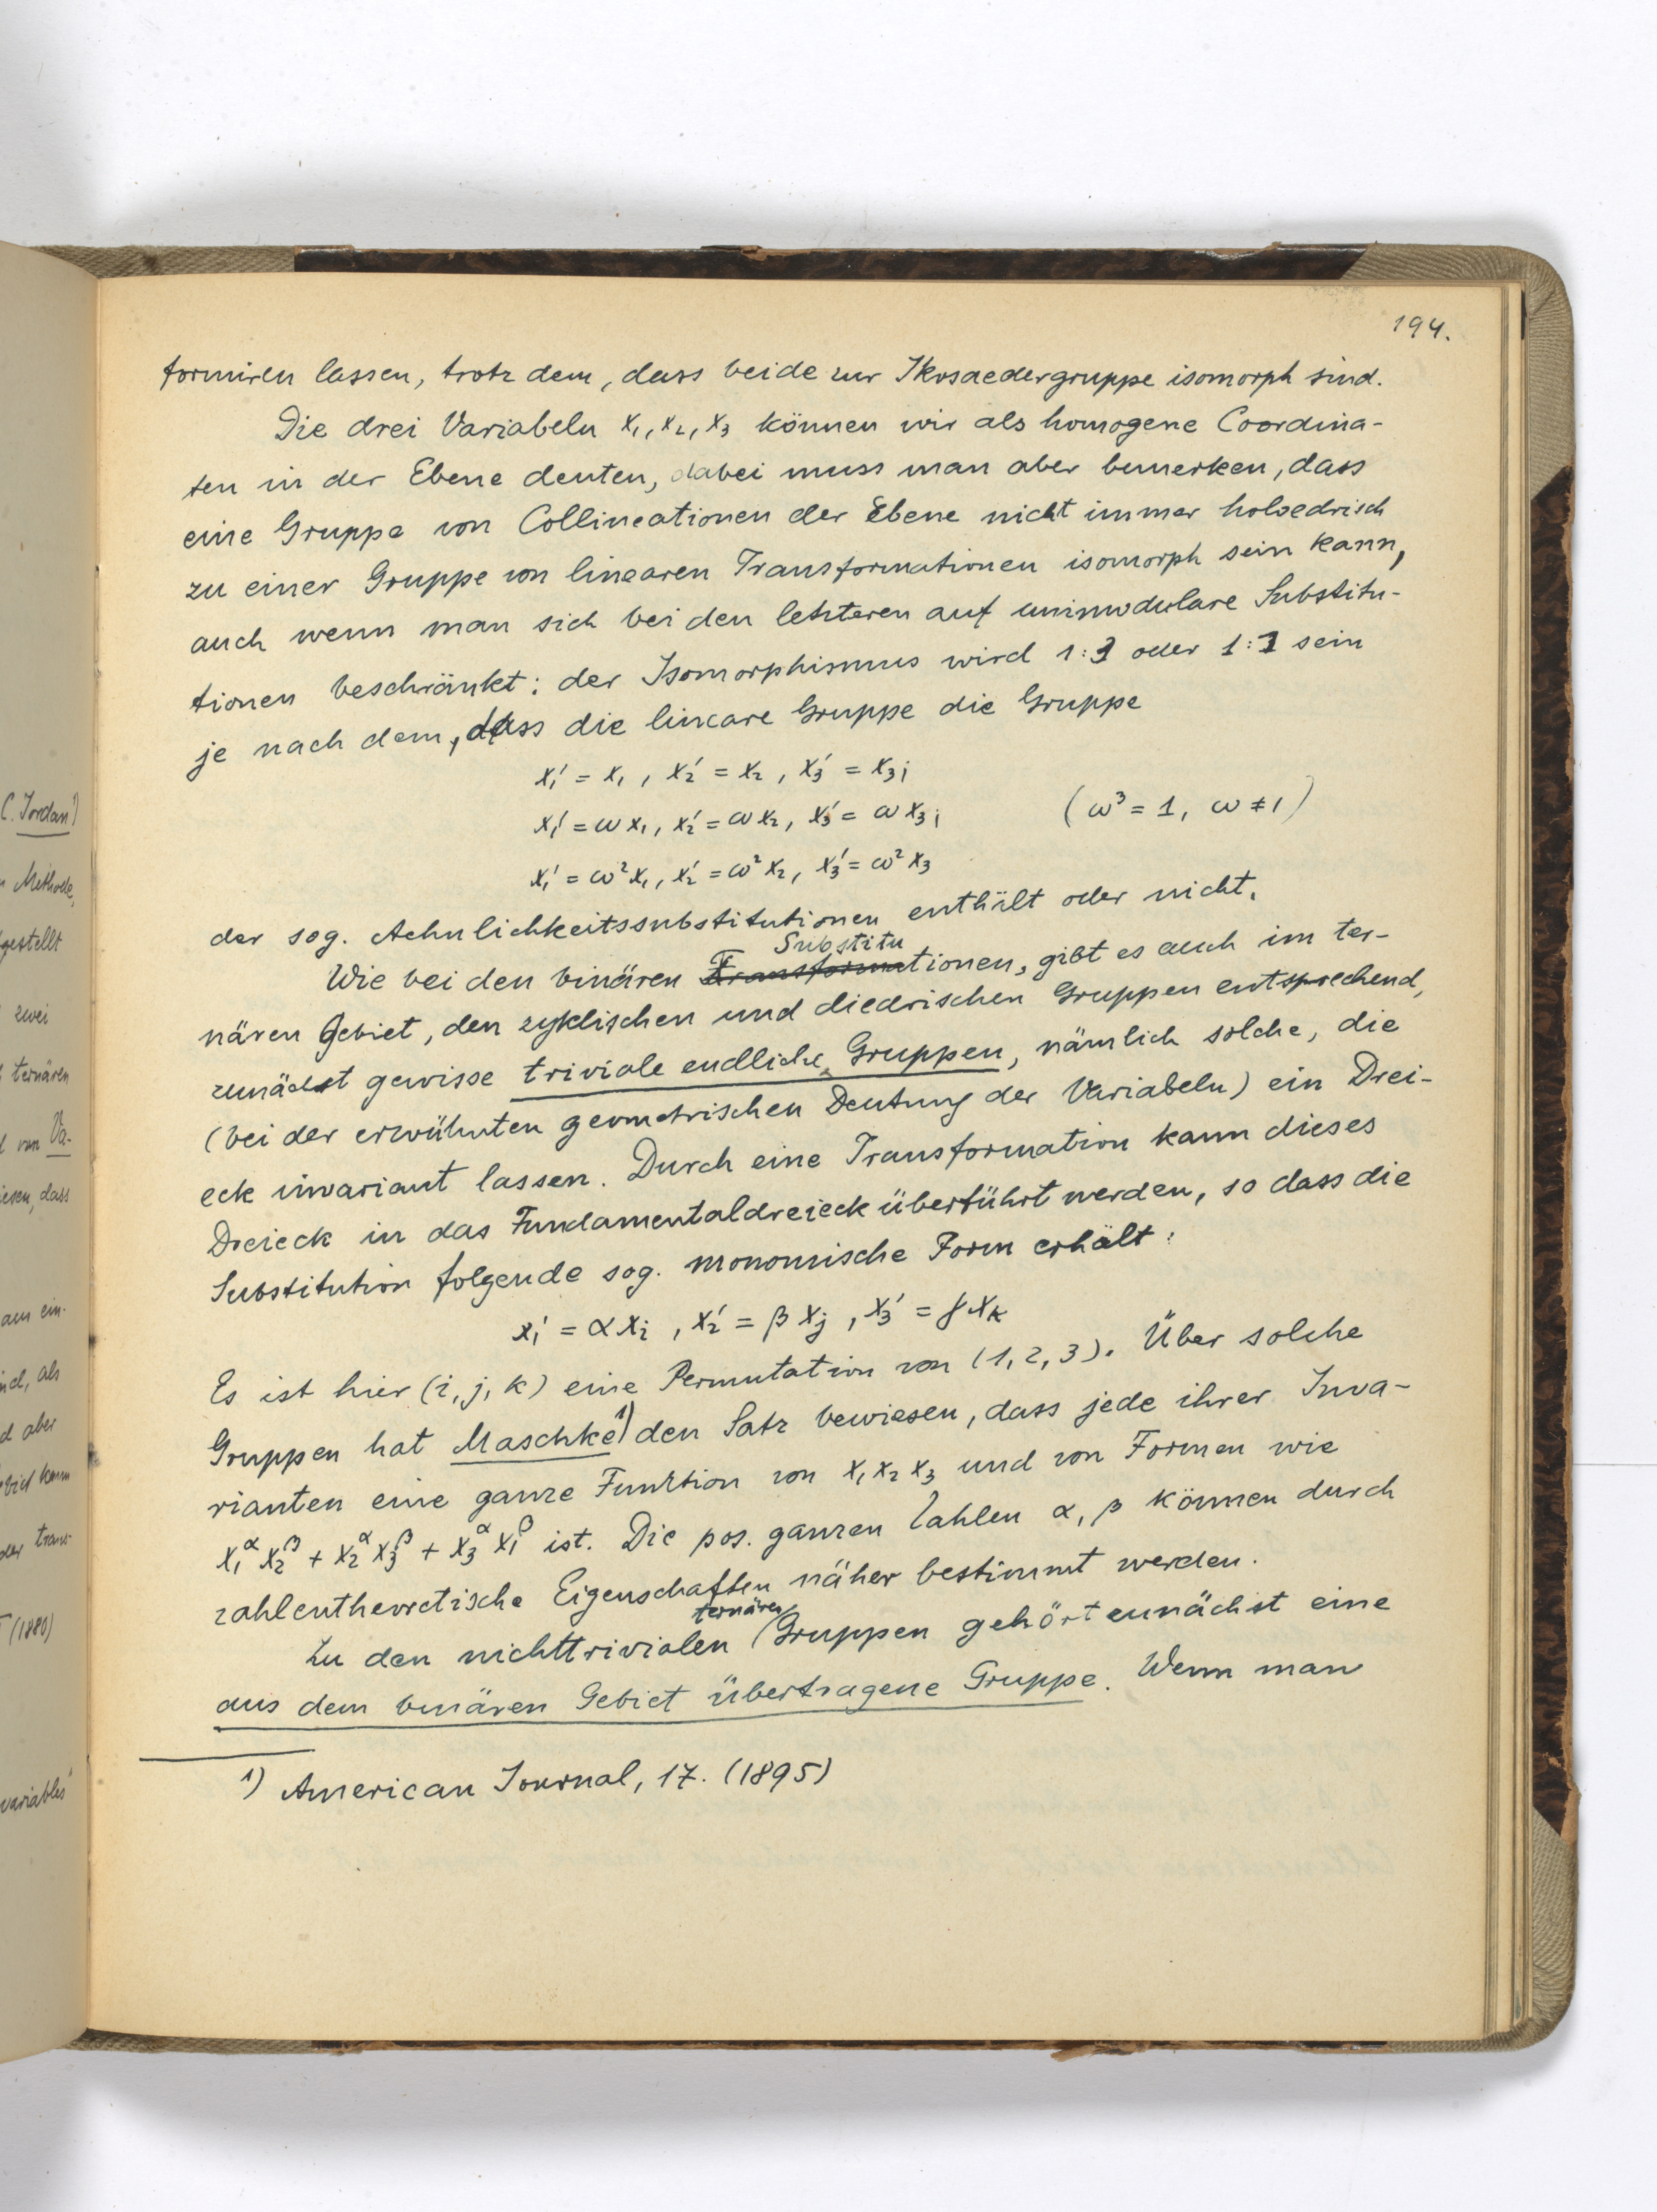 194.
formiren lassen, trotz dem, dass beide zur Ikosaedergruppe isomorph sind.
Die drei Variabeln x₁, x₂, x₃ können wir als homogene Coordina-
ten in der Ebene deuten, dabei muss man aber bemerken, dass
eine Gruppe von Collineationen der Ebene nicht immer holoedrisch
zu einer Gruppe von linearen Transformationen isomorph sein kann,
auch wenn man sich bei den letzteren auf unimodulare Substitu-
tionen beschränkt: der Isomorphismus wird 1:3 oder 1:1 sein
je nach dem, dass die lineare Gruppe die Gruppe
x₁' = x₁, x₂' = x₂, x₃' = x₃;
x₁' = ωx₁, x₂' = ωx₂, x₃' = ωx₃; (ω³ = 1, ω ≠ 1)
x₁' = ω²x₁, x₂' = ω²x₂, x₃' = ω²x₃
der sog. Aehnlichkeitssubstitutionen enthält oder nicht.
Substitu
Wie bei den binären Transformationen, gibt es auch im ter-
nären Gebiet, den zyklischen und diedrischen Gruppen entsprechend,
zunächst gewisse triviale endliche Gruppen, nämlich solche, die
(bei der erwühnten geometrischen Deutung der Variabeln) ein Drei-
eck invariant lassen. Durch eine Transformation kann dieses
Dreieck in das Fundamentaldreieck überführt werden, so dass die
Substitution folgende sog. monomische Form erhält:
x₁' = αxᵢ, x₂' = βxⱼ, x₃' = γxₖ
Es ist hier (i, j, k) eine Permutation von (1, 2, 3). Über solche
Gruppen hat Maschke¹⁾ den Satz bewiesen, dass jede ihrer Inva-
rianten eine ganze Funktion von x₁x₂x₃ und von Formen wie
x₁^α x₂^β + x₂^α x₃^β + x₃^α x₁^β ist. Die pos. ganzen Zahlen α, β können durch
zahlentheoretische Eigenschaften näher bestimmt werden.
ternären
Zu den nichttrivialen Gruppen gehört zunächst eine
aus dem binären Gebiet übertragene Gruppe. Wenn man
1) American Journal, 17. (1895)
C. Jordan¹⁾
Methode,
gestellt
zwei
ternären
von Va-
iesen, dass
am ein-
ind, als
d aber
biet kann
der trans-
(1880)
variables"